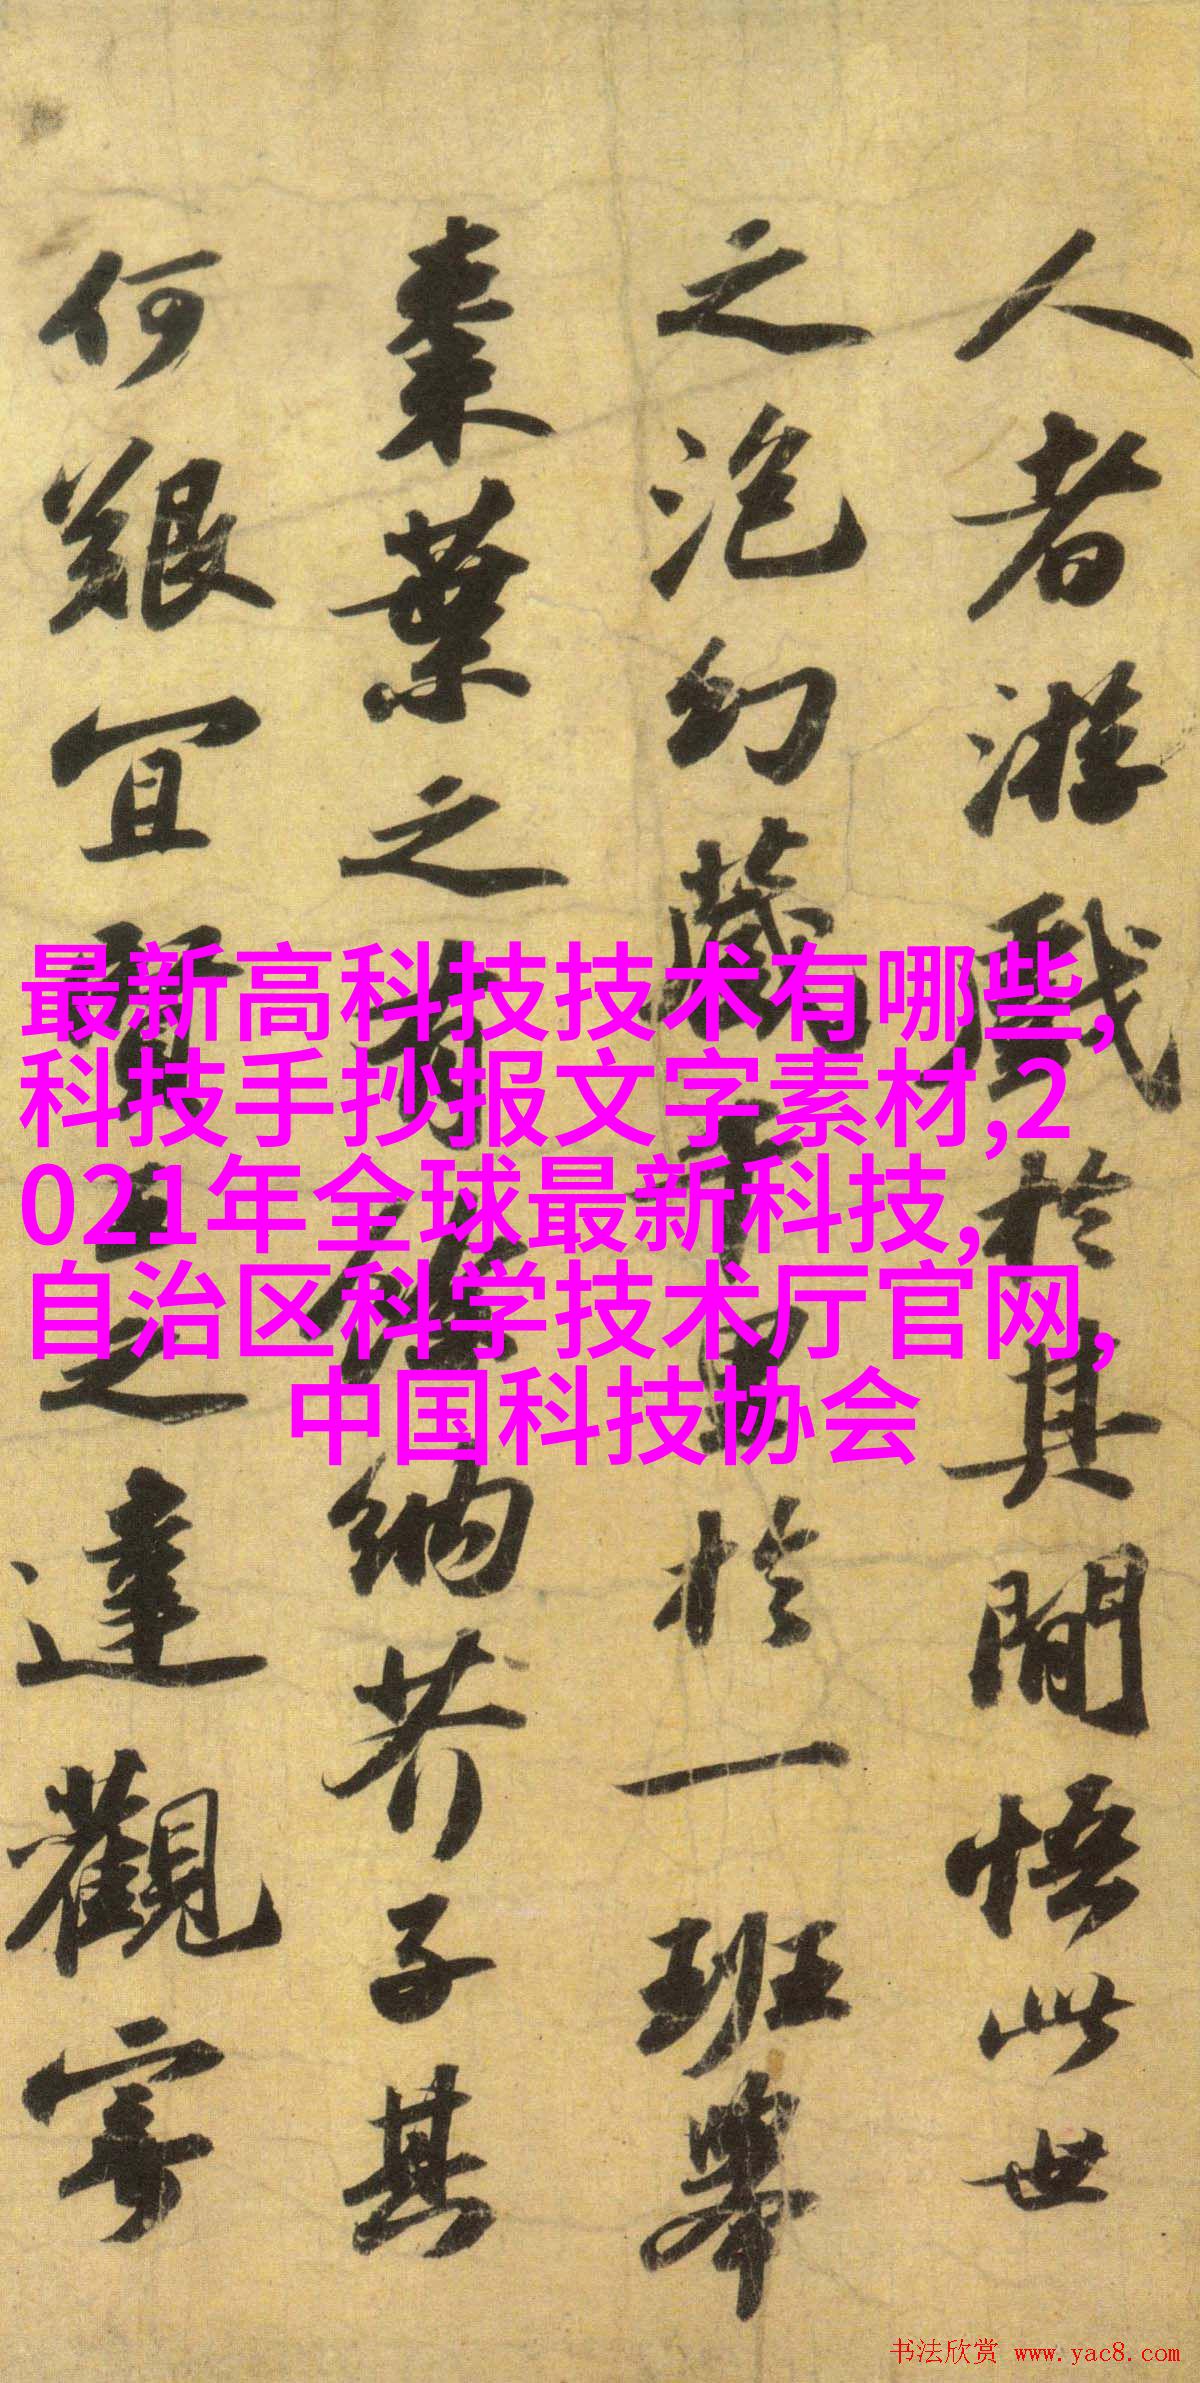 人者游戲於其間悟此世
之泡幻藏千里於一班舉
棗葉之有餘納芥子其
何艱宜賢王之達觀寄
最新高科技技术有哪些,
科技手抄报文字素材,2
021年全球最新科技,
自治区科学技术厅官网,
中国科技协会
书法欣赏 www.yac8.com